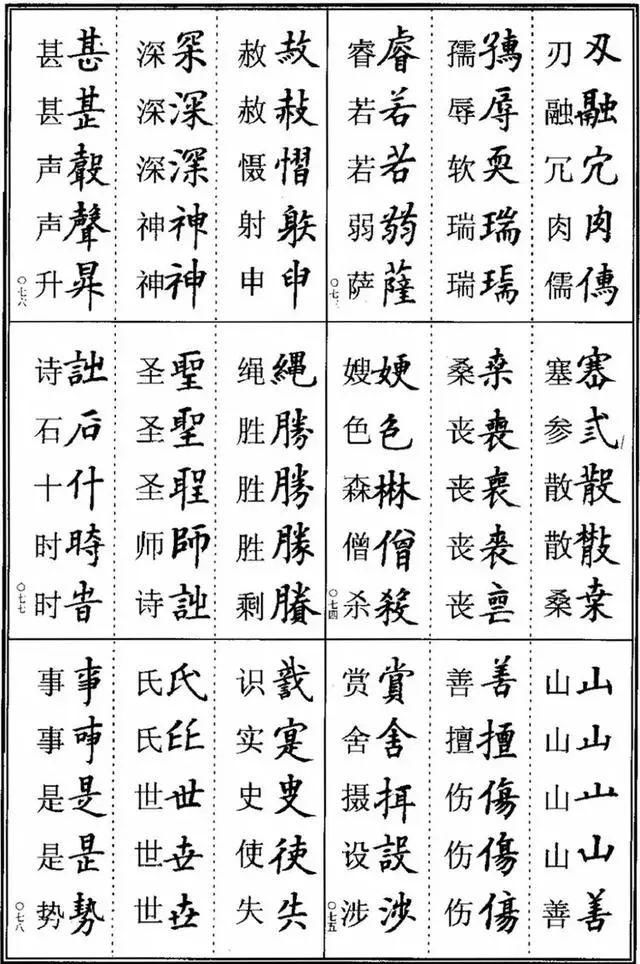 刃刄
融融
冗冗
肉肉
儒
孺
辱辱
软耎
瑞瑞
瑞
睿睿
若若
若若
弱
萨薩
〇七三
塞
参弎
散散
散
桑桒
桑桒
丧喪
丧喪
丧喪
丧
嫂㛐
色色
森
僧僧
杀殺
〇七四
山山
山山
山山
山山
善善
善善
擅擅
伤傷
伤傷
伤傷
赏賞
舍舎
摄
设設
涉涉
〇七五
赦赦
赦
慑慴
射躲
申申
深罙
深深
深深
神神
神神
甚甚
甚
声
声聲
升昇
〇七六
绳繩
胜勝
胜勝
胜勝
剩賸
圣聖
圣聖
圣
师師
诗詘
诗詘
石石
十什
时時
时旹
〇七七
识
实寔
史
使使
失失
氏氏
氏
世世
世卋
世
事事
事
是是
是昰
势勢
〇七八